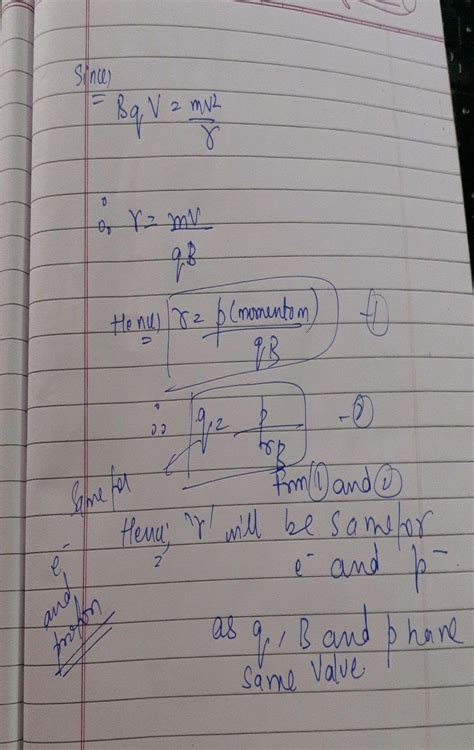 Since,
BqV = mv²/r
∴ r = mv/qB
Hence, r = p(momentom)/qB -①
∴ q = p/rB -②
Same for
e⁻
and
proton
from ① and ②
Hence, 'r' will be same for
e⁻ and p⁻
as q, B and p have
same value.